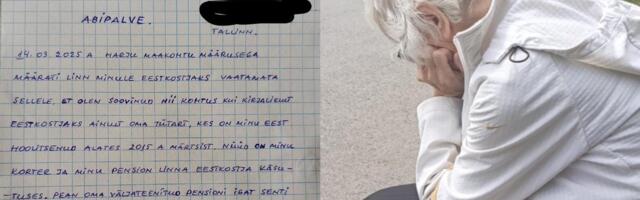 ABIPALVE.
TALLINN.
14.03.2025 A HARJU MAAKOHTU MÄÄRUSEGA
MÄÄRATI LINN MINULE EESTKOSTJAKS VAATAMATA
SELLELE, ET OLEN SOOVINUD NII KOHTUS KUI KIRJALIKULT
EESTKOSTJAKS AINULT OMA TÜTART, KES ON MINU EEST
HOOLITSENUD ALATES 2015 A MÄRTSIST. NÜÜD ON MINU
KORTER JA MINU PENSION LINNA EESTKOSTJA KÄSU-
-TUSES. PEAN OMA VÄLJATEENITUD PENSIONI IGAT SENTI